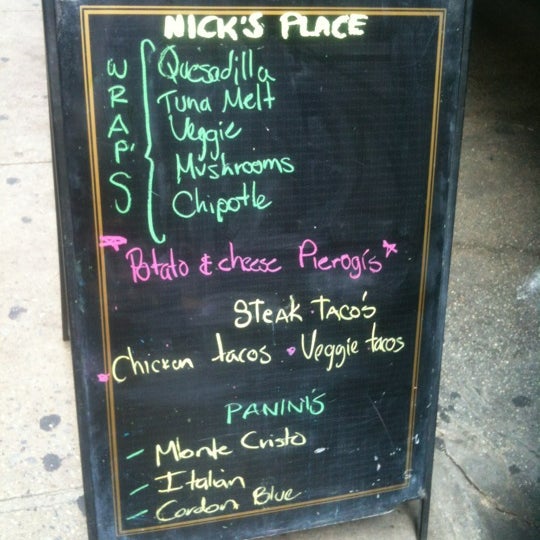 NICK'S PLACE
WRAP'S
Quesadilla
Tuna Melt
Veggie
Mushrooms
Chipotle
Potato & cheese Pierogi's
STEAK TACO'S
Chicken tacos • Veggie tacos
PANINI'S
- Monte Cristo
- Italian
- Cordon Blue